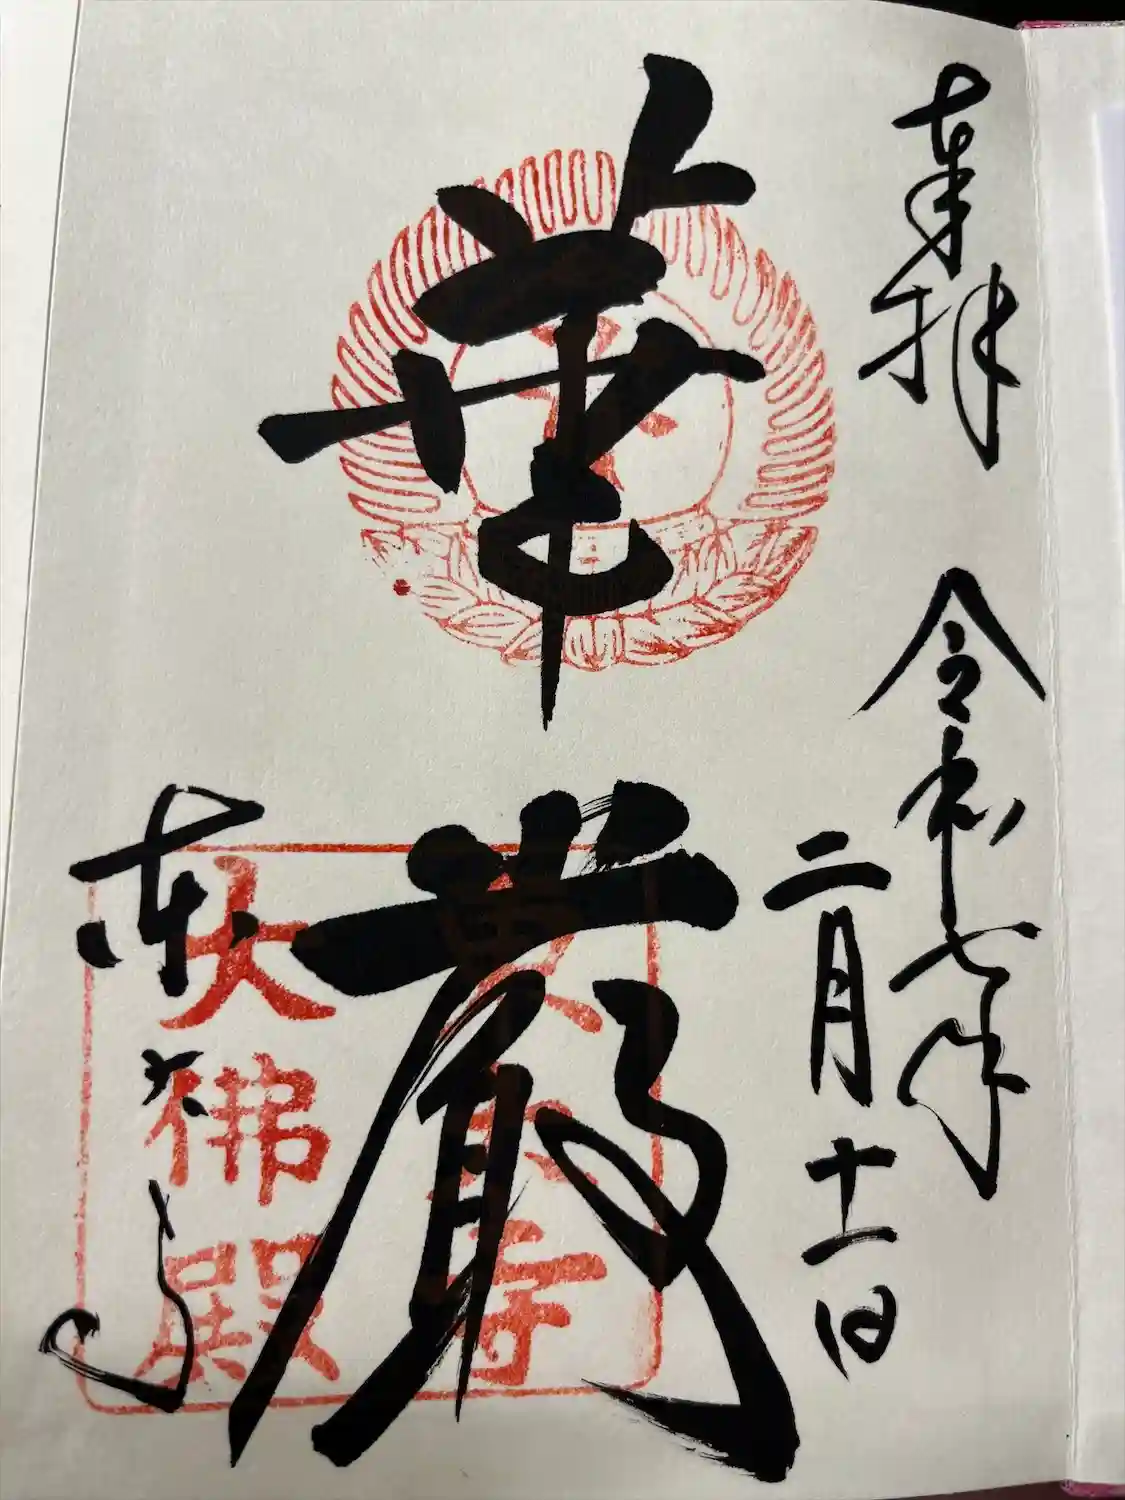 奉拝
令和七年
二月十一日
華嚴
東大寺
東大寺
大佛殿